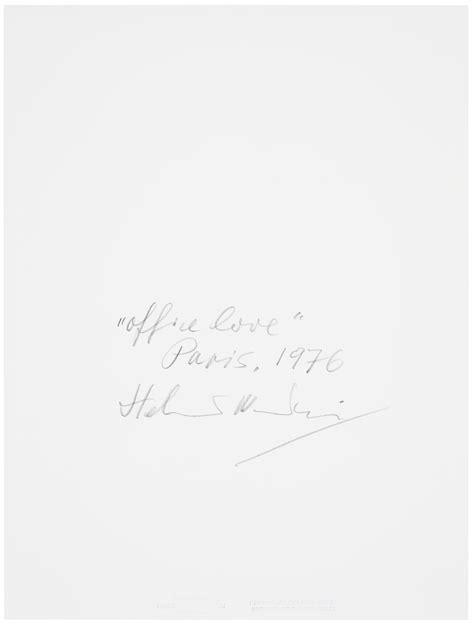 "office love"
Paris, 1976
Helmut Newton